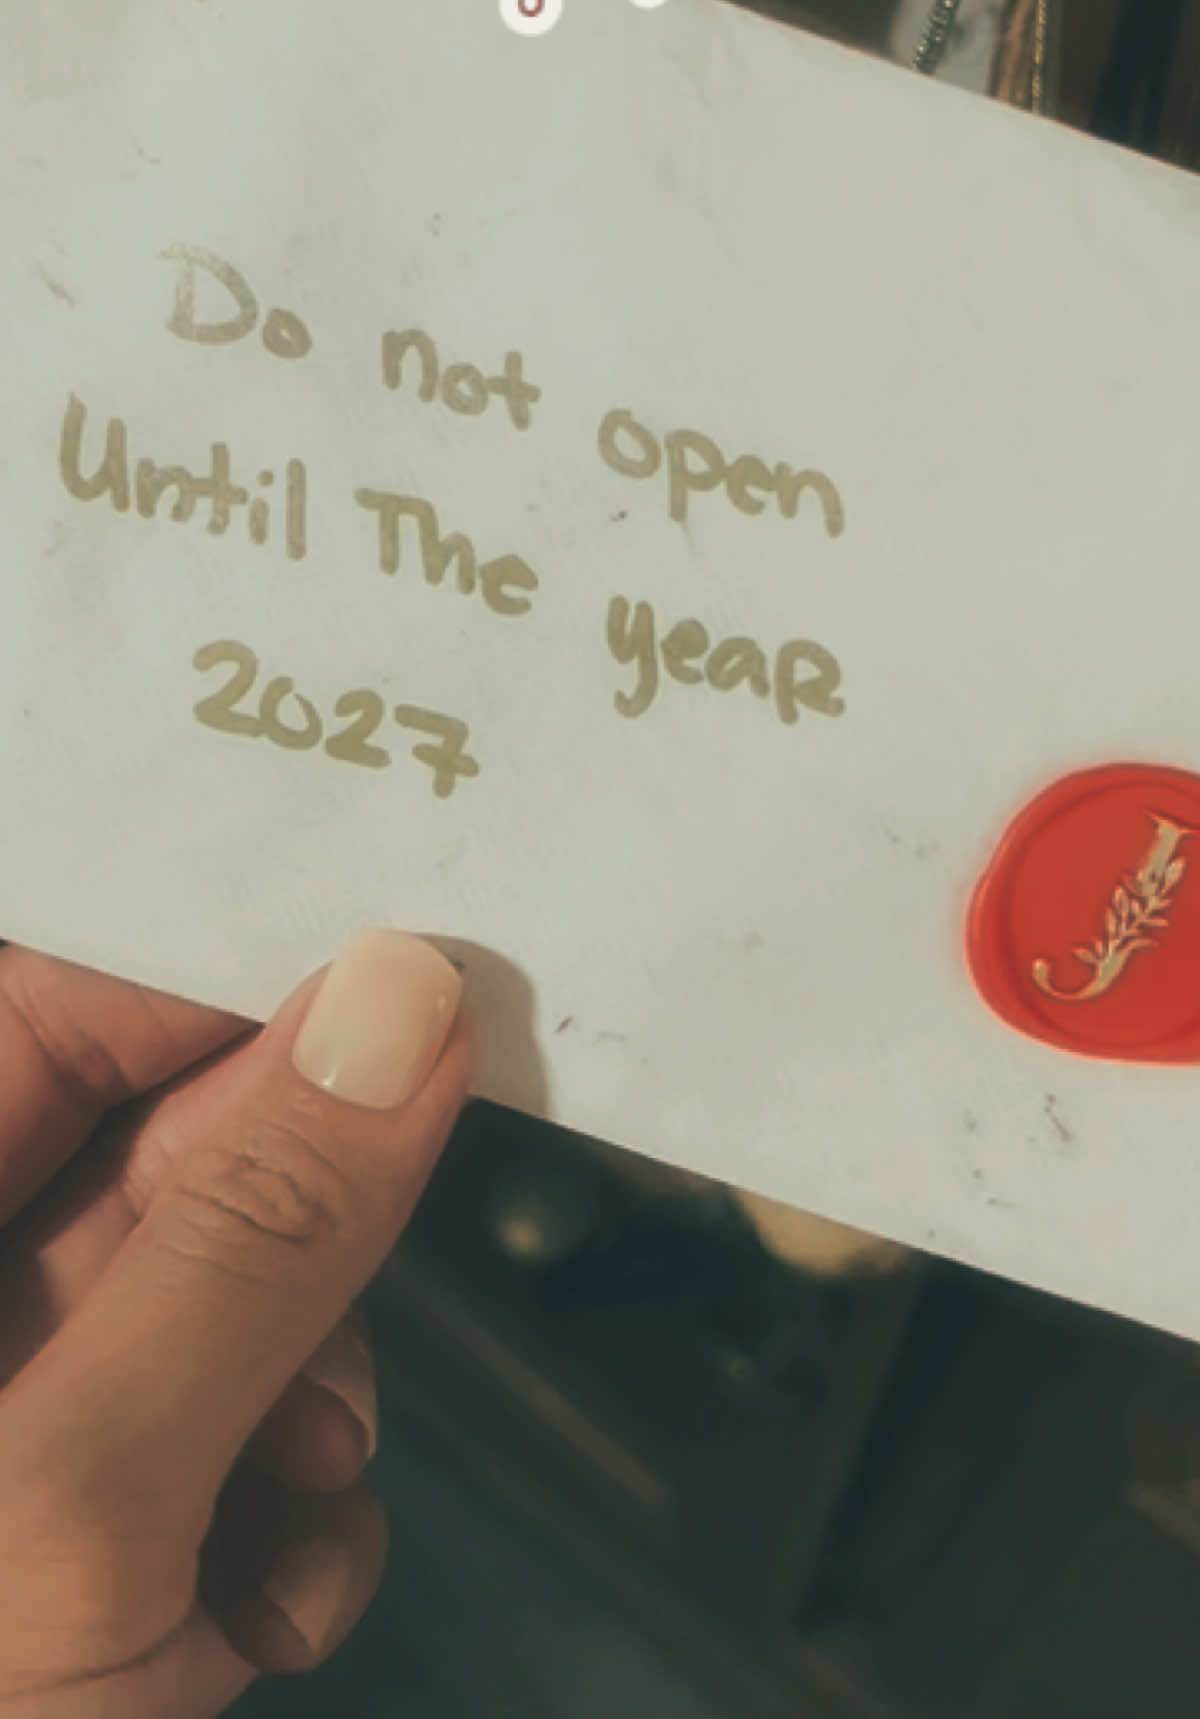 Do not open
Until The year
2027
J